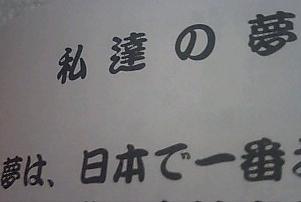 私達の夢
夢は、日本で一番